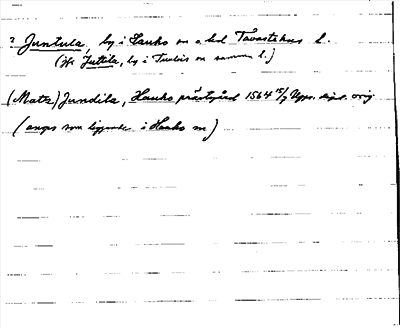 ? Juntula, by i Hauho sn o. led Tavastehus l.
(Jfr Juttila, by i Tuulois sn samma l.)
(Mats) Jundila, Hauho prästgård 1564 15/7 Upps. dipl. orig
(anges som liggande i Hauho sn)